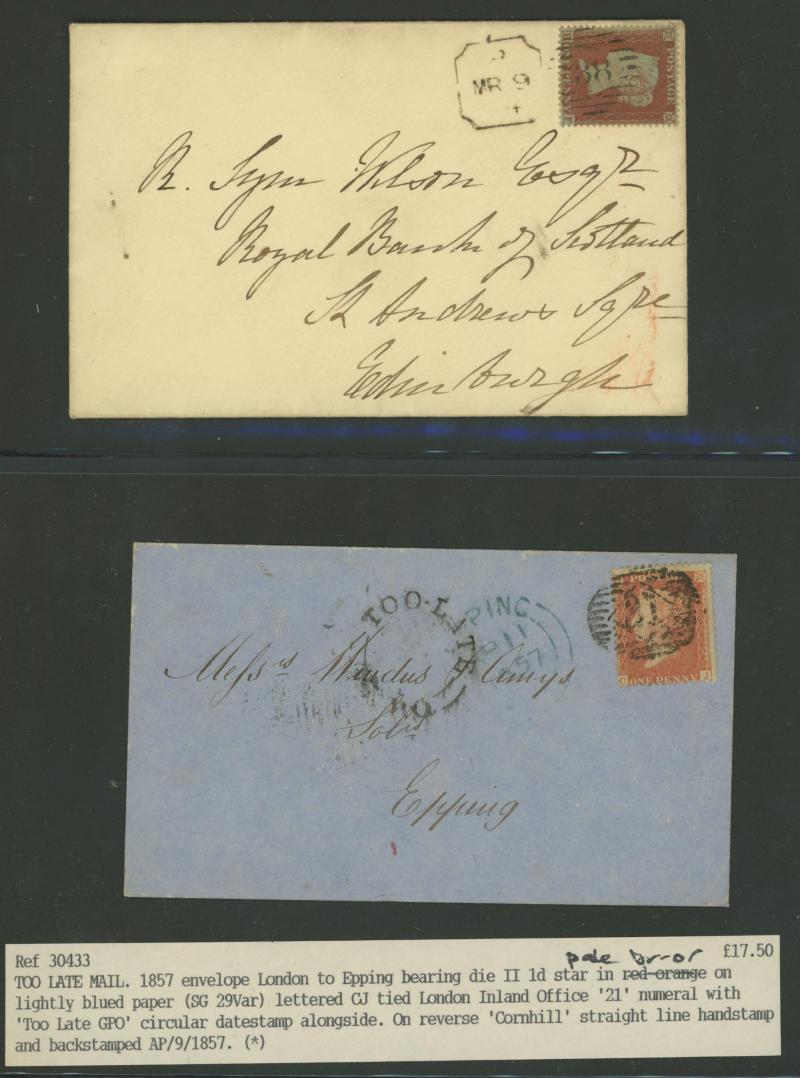 MR 9
4
38
POSTAGE
R. Sym Wilson Esqr
Royal Bank of Scotland
St Andrews Sqre
Edinburgh
TOO-LATE
PING
11
57
21
ONE PENNY
C J
Messrs Windus &
Solrs
Epping
Ref 30433
pale br-or
£17.50
TOO LATE MAIL. 1857 envelope London to Epping bearing die II 1d star in red-orange on
lightly blued paper (SG 29Var) lettered CJ tied London Inland Office '21' numeral with
'Too Late GPO' circular datestamp alongside. On reverse 'Cornhill' straight line handstamp
and backstamped AP/9/1857. (*)